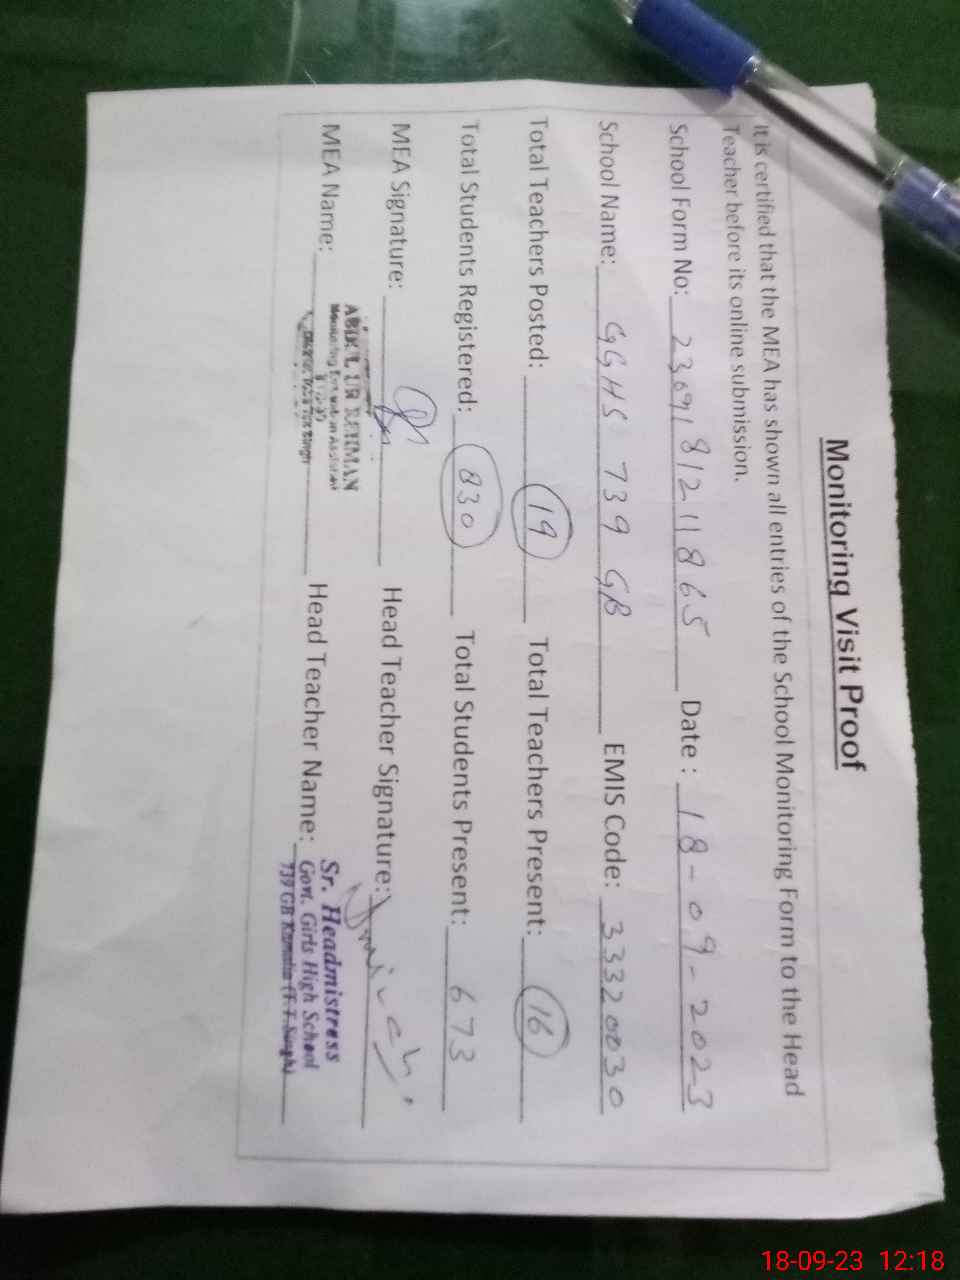 Monitoring Visit Proof
It is certified that the MEA has shown all entries of the School Monitoring Form to the Head
Teacher before its online submission.
School Form No: 2309181211865 Date : 18-09-2023
School Name: GGHS 739 GB EMIS Code: 33320030
Total Teachers Posted: 19 Total Teachers Present: 16
Total Students Registered: 830 Total Students Present: 673
MEA Signature: Head Teacher Signature:
MEA Name: ABDUL UR REHMAN Head Teacher Name: Sr. Headmistress
Monitoring Evaluation Assistant Govt. Girls High School
District Toba Tek Singh 739 GB Kamalia (T.T.Singh)
18-09-23 12:18